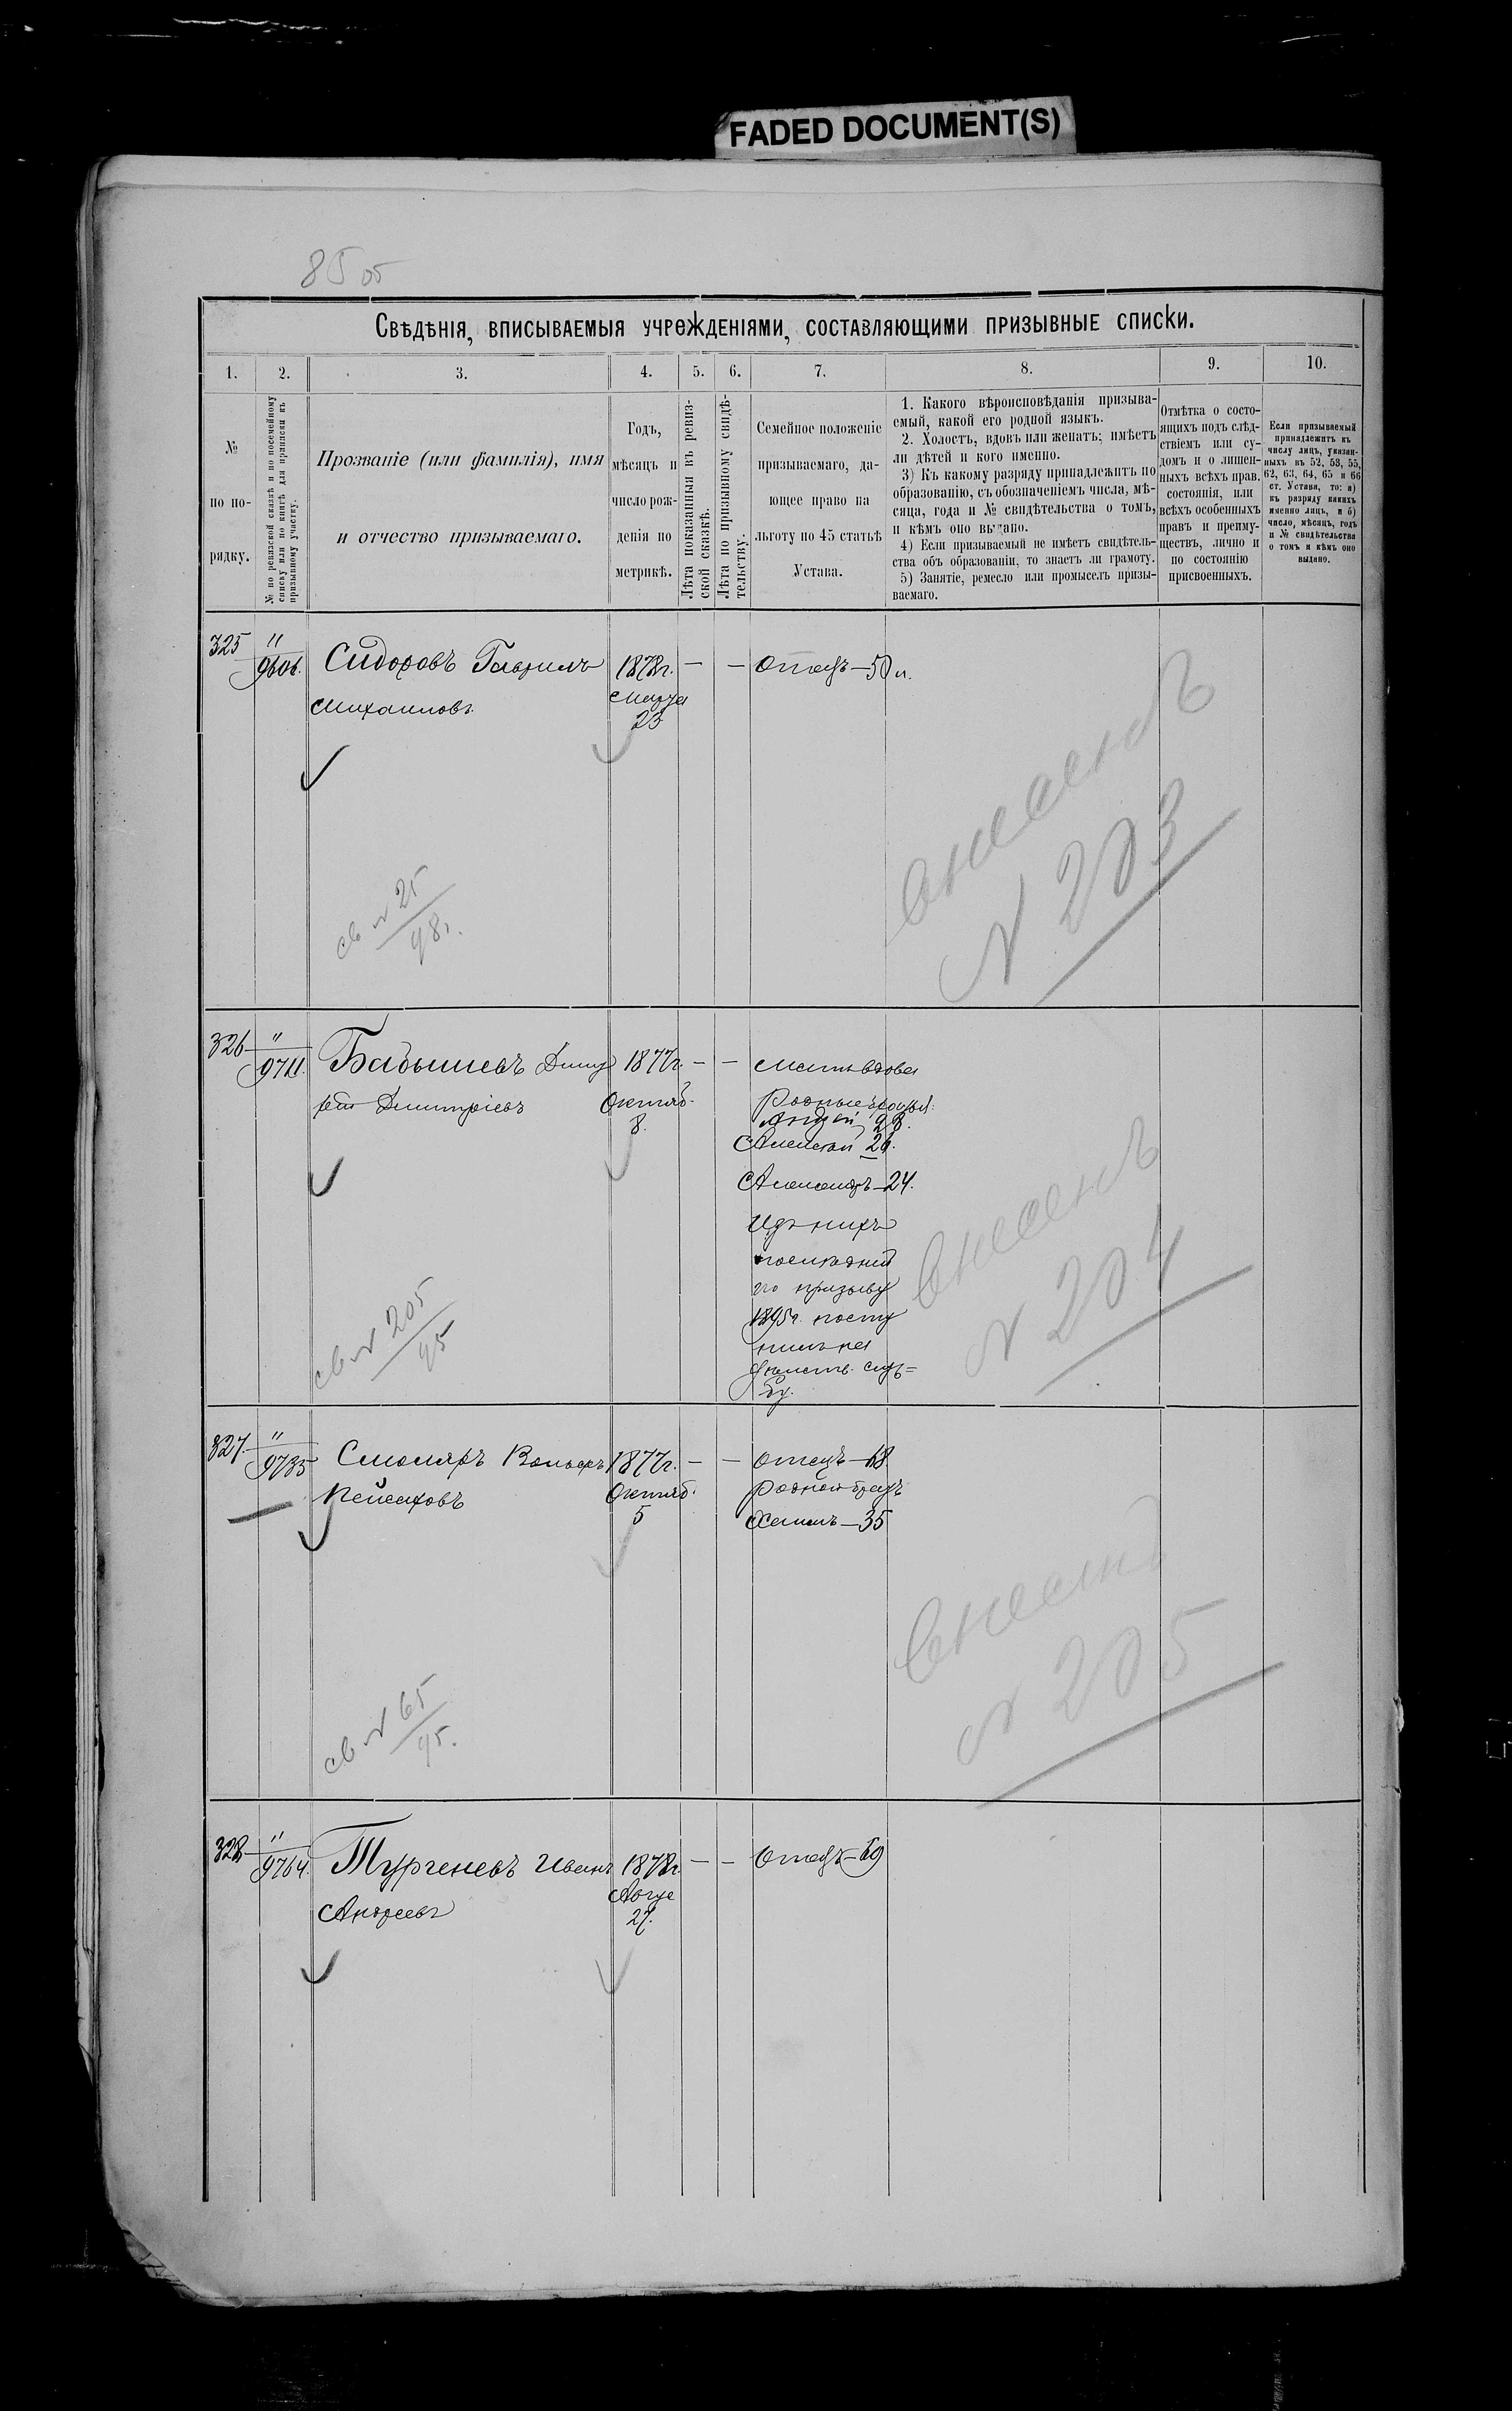 FADED DOCUMENT(S)
85 05
Свѣдѣнія, вписываемыя учрежденіями, составляющими призывные списки.
1. 2. 3. 4. 5. 6. 7. 8. 9. 10.
№
по по-
рядку.
№ по ревизской сказкѣ и по посемейному
списку или по книгѣ для приписки къ
призывному участку.
Прозваніе (или фамилія), имя
и отчество призываемаго.
Годъ,
мѣсяцъ и
число рож-
денія по
метрикѣ.
Лѣта показанныя въ ревиз-
ской сказкѣ.
Лѣта по призывному свидѣ-
тельству.
Семейное положеніе
призываемаго, да-
ющее право на
льготу по 45 статьѣ
Устава.
1. Какого вѣроисповѣданія призыва-
емый, какой его родной языкъ.
2. Холостъ, вдовъ или женатъ; имѣетъ
ли дѣтей и кого именно.
3) Къ какому разряду принадлежитъ по
образованію, съ обозначеніемъ числа, мѣ-
сяца, года и № свидѣтельства о томъ,
и кѣмъ оно выдано.
4) Если призываемый не имѣетъ свидѣтель-
ства объ образованіи, то знаетъ ли грамоту.
5) Занятіе, ремесло или промыселъ призы-
ваемаго.
Отмѣтка о состо-
ящихъ подъ слѣд-
ствіемъ или су-
домъ и о лишен-
ныхъ всѣхъ прав.
состоянія, или
всѣхъ особенныхъ
правъ и преиму-
ществъ, лично и
по состоянію
присвоенныхъ.
Если призываемый
принадлежитъ къ
числу лицъ, указан-
ныхъ въ 52, 53, 55,
62, 63, 64, 65 и 66
ст. Устава, то: а)
къ разряду какихъ
именно лицъ, и б)
число, мѣсяцъ, годъ
и № свидѣтельства
о томъ и кѣмъ оно
выдано.
325 " Сидоровъ Гаврилъ 1878г. — — Отецъ—50 л.
Михаиловъ Марта
23
внесенъ
№ 203
св № 25
98г.
326 " 9711. Бабышевъ Дими 1877г. — — Мать вдова
трій Димитріевъ Октяб. Родные братья:
8. Андрей 28.
Алексѣй 26.
Александръ—24.
Изъ нихъ
послѣдній
по призыву
1895г. посту
пилъ на
дѣйств. служ=
бу.
внесенъ
№ 204
св № 205
95
327. " 9735 Смоляръ Вольфъ 1877г. — — Отецъ—68
Пейсаховъ Октяб. Родной братъ
5 Хаимъ—35
внесенъ
№ 205
св № 65
95.
328 " 9764. Тургеневъ Иванъ 1878г. — — Отецъ—69
Андреевъ Авгус
27.